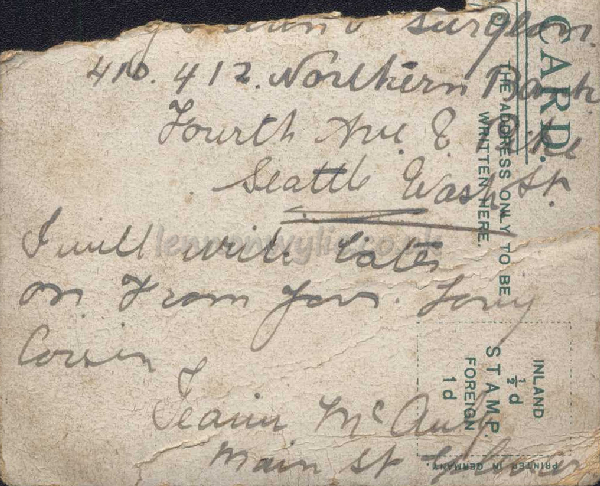 Surgeon.
410. 412. Northern Bank
Fourth Ave. & Pike
Seattle Wash St.
I will write later
on From your. Loving
Cousin
Main St
CARD.
THE ADDRESS ONLY TO BE
WRITTEN HERE.
INLAND
½d
STAMP.
FOREIGN
1d
PRINTED IN GERMANY.